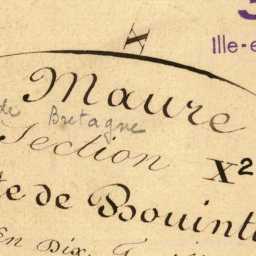 X
Ille-e
Maure
de Bretagne
Section X²
te de Bouint
En Dix